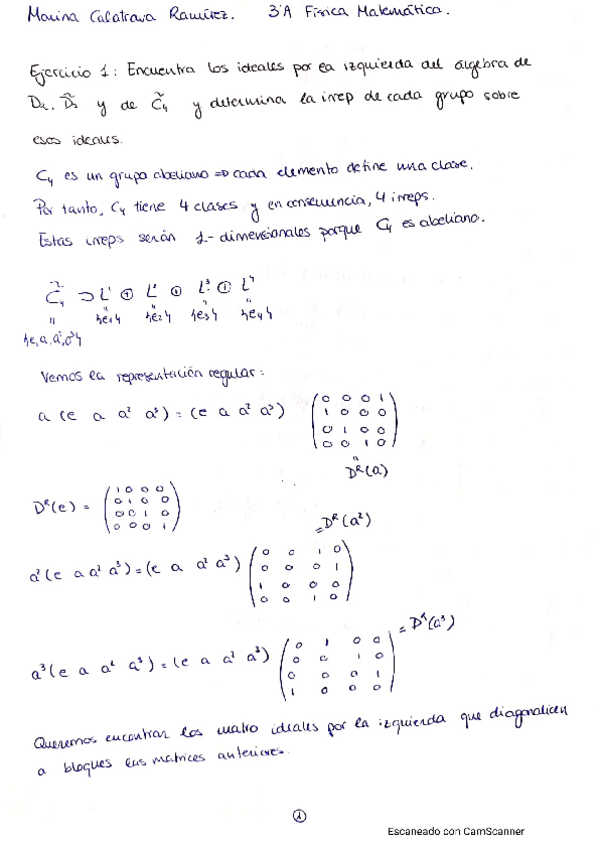 Marina Calatrava Ramírez. 3ºA Física Matemática.
Ejercicio 1: Encuentra los ideales por la izquierda del álgebra de
D̃₂ y de C̃₄ y determina la irrep de cada grupo sobre
esos ideales.
C₄ es un grupo abeliano ⇒ cada elemento define una clase.
Por tanto, C₄ tiene 4 clases y en consecuencia, 4 irreps.
Estas irreps serán 1-dimensionales porque C₄ es abeliano.
C̃₄ ⊃ L¹ ⊕ L² ⊕ L³ ⊕ L⁴
" " " " "
{e,a,a²,a³} {e₁} {e₂} {e₃} {e₄}
Vemos la representación regular:
a (e a a² a³) = (e a a² a³)
0 0 0 1
1 0 0 0
0 1 0 0
0 0 1 0
"
Dᴿ(a)
Dᴿ(e) =
1 0 0 0
0 1 0 0
0 0 1 0
0 0 0 1
= Dᴿ(a²)
a² (e a a² a³) = (e a a² a³)
0 0 1 0
0 0 0 1
1 0 0 0
0 0 1 0
= Dᴿ(a³)
a³ (e a a² a³) = (e a a² a³)
0 1 0 0
0 0 1 0
0 0 0 1
1 0 0 0
Queremos encontrar los cuatro ideales por la izquierda que diagonalicen
a bloques las matrices anteriores.
①
Escaneado con CamScanner